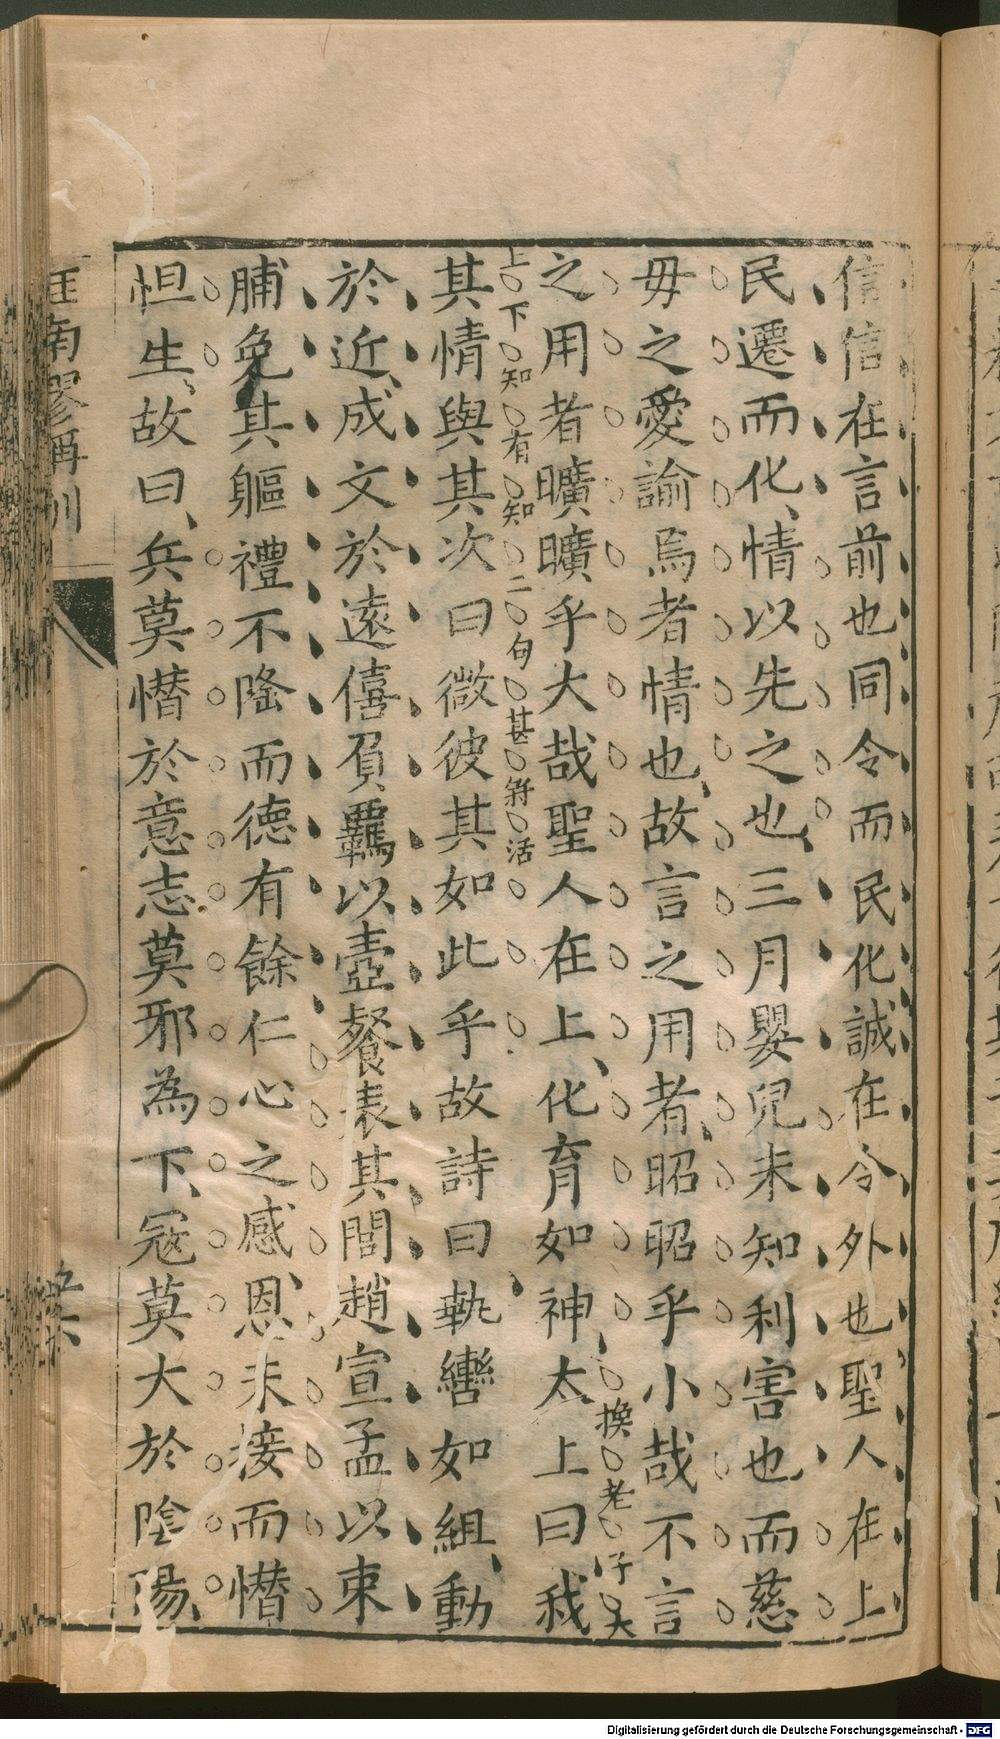 信信在言前也同令而民化誠在令外也聖人在上
民遷而化情以先之也三月嬰兒未知利害也而慈
毋之愛諭焉者情也故言之用者昭昭乎小哉不言
之用者曠曠乎大哉聖人在上化育如神太上曰我
換老子
上下知有知二句甚活
其情與其次曰微彼其如此乎故詩曰執轡如組動
於近成文於遠僖負羈以壺餐表其閭趙宣孟以束
脯免其軀禮不隆而德有餘仁心之感恩未接而憯
怛生故曰兵莫憯於意志莫邪為下寇莫大於陰陽
南
Digitalisierung gefördert durch die Deutsche Forschungsgemeinschaft - DFG